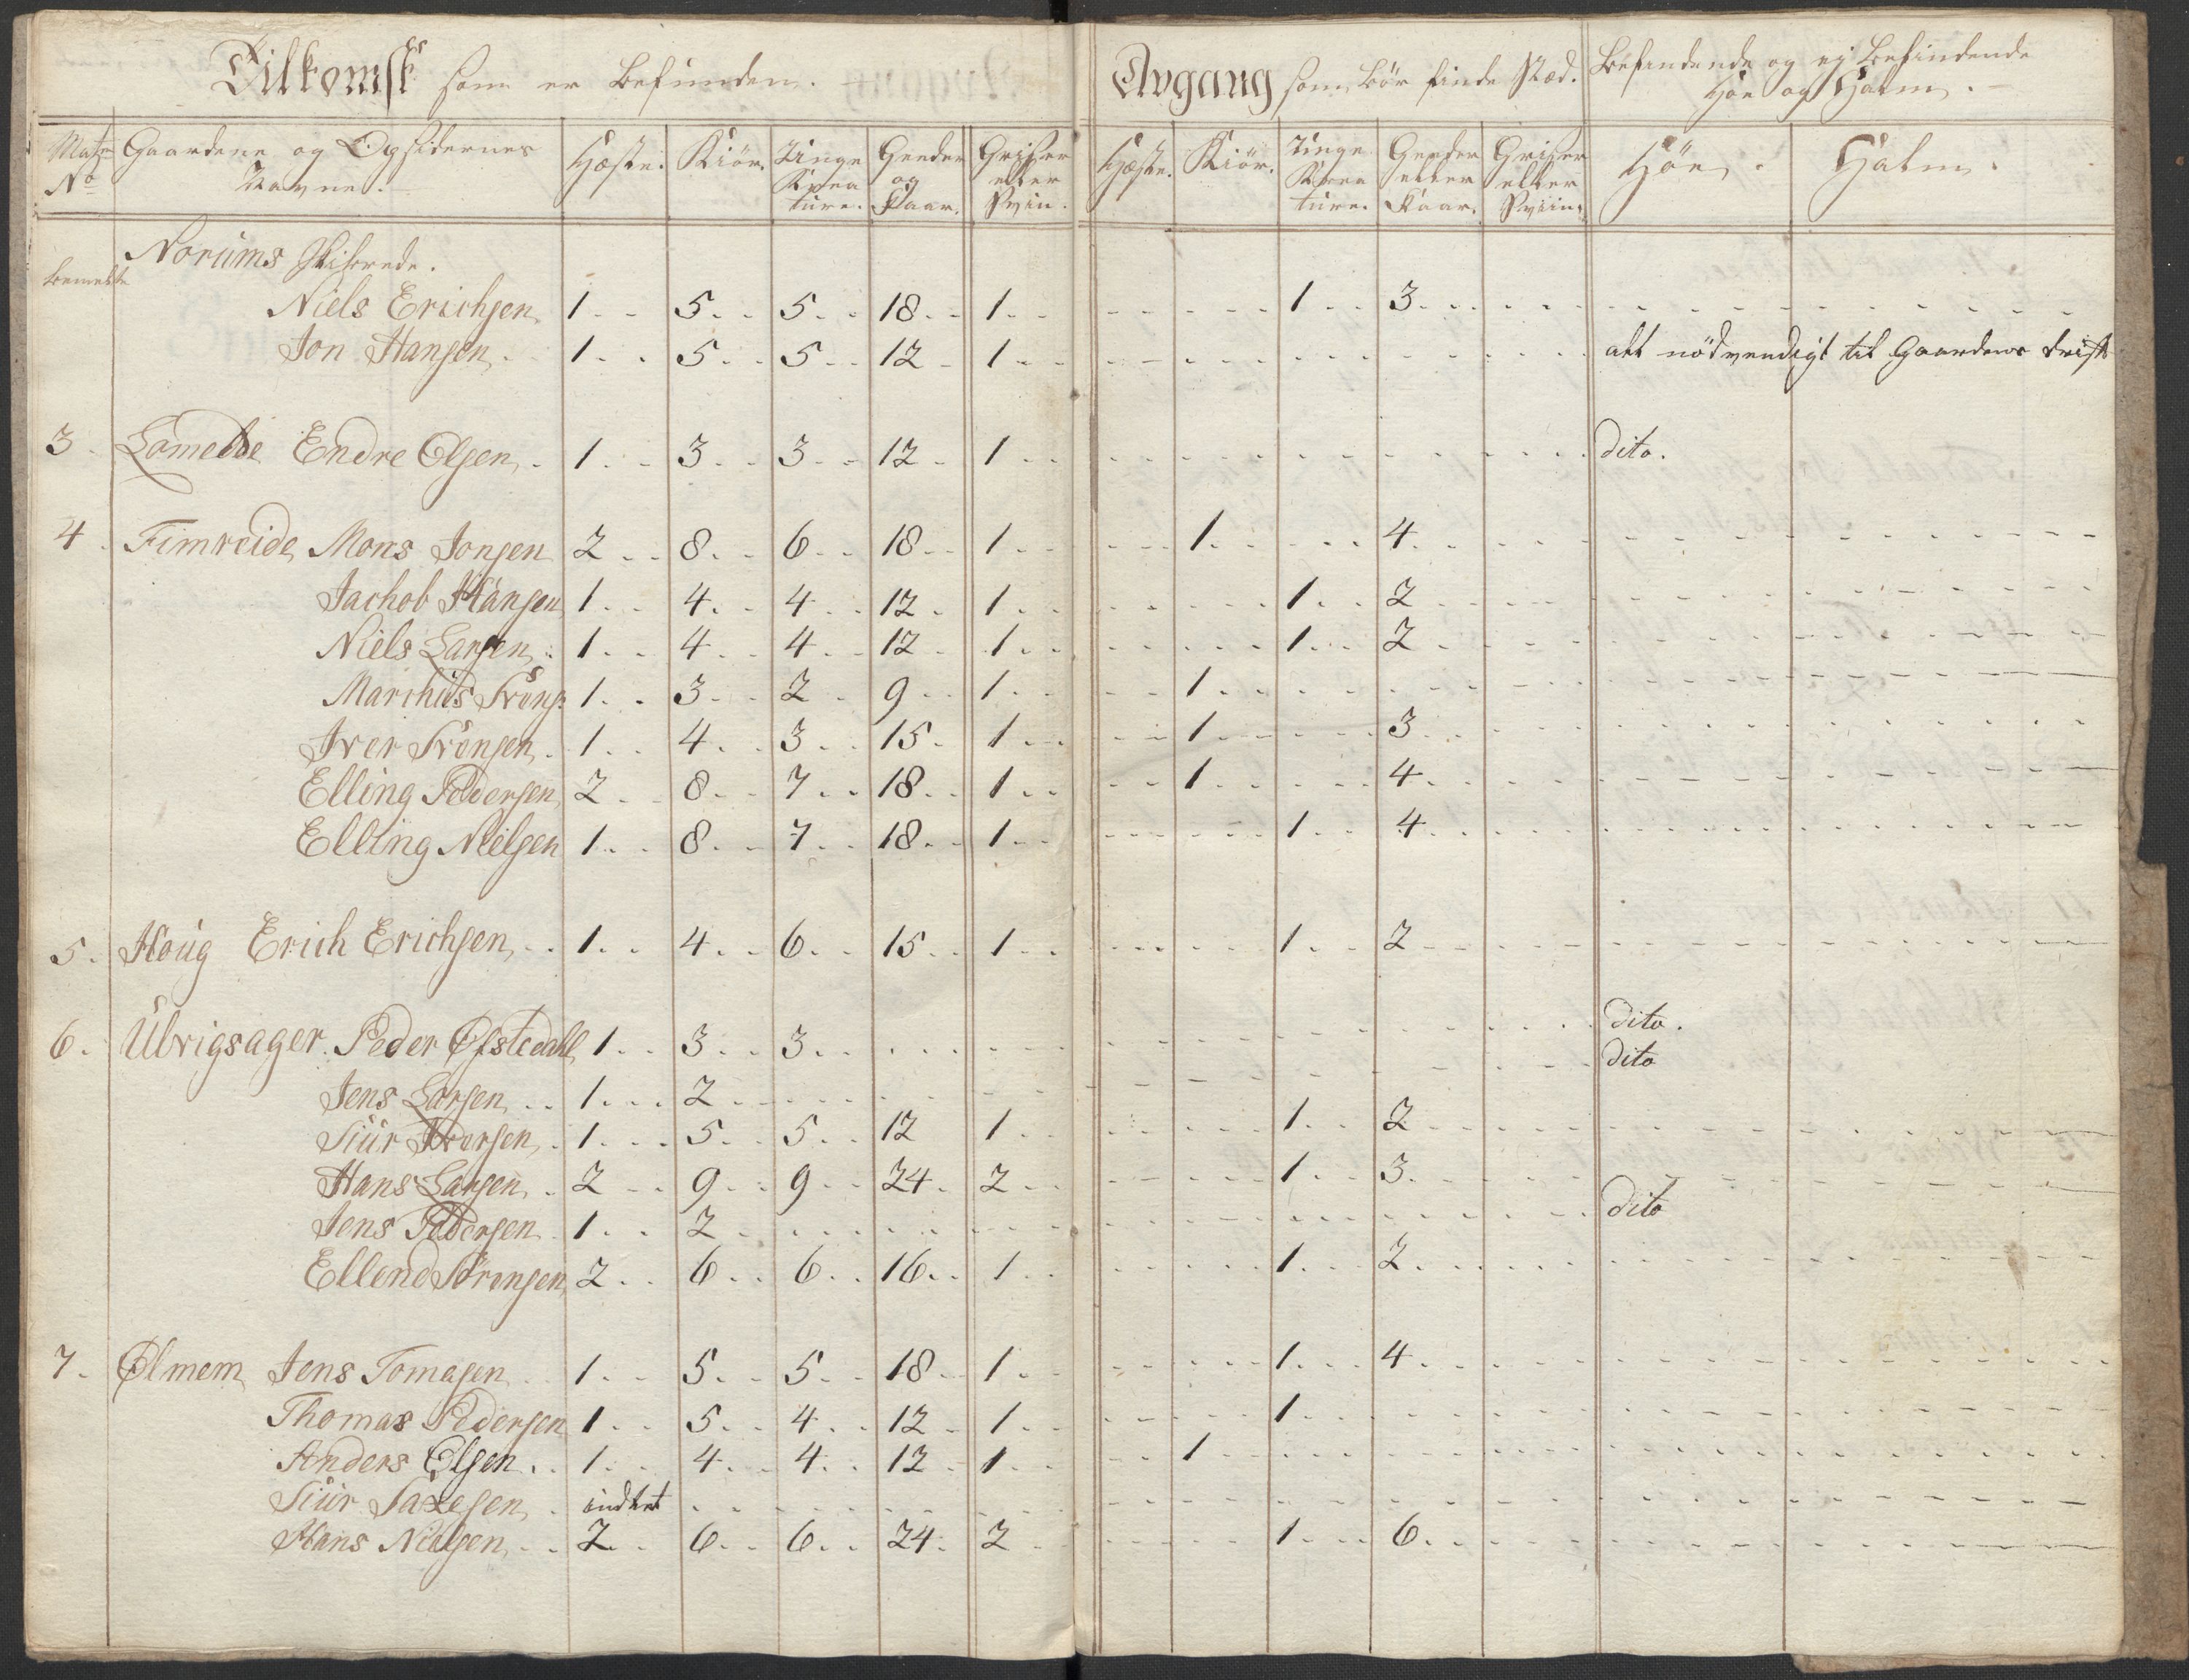 Tilkomst som er befunden.
Avgang som bör finde stæd.
Befindende og ej befindende
Höe og Halm.
Matr No Gaardene og Opsidernes Navne. Hæste. Kiör. Unge Krea ture. Geeder og Faar. Griser eller Sviin. Hæste. Kiör. Unge Krea ture. Geeder eller Faar. Griser eller Sviin. Höe. Halm.
Norums Skibrede.
Niels Erichsen 1 5 5 18 1 1 3
Jon Hansen 1 5 5 12 1 alt nödvendigt til Gaardens drift
3. Endre Olsen 1 3 3 12 1 dito.
4. Fimreide Mons Jonsen 2 8 6 18 1 1 4
Jachob Hansen 1 4 4 12 1 1 2
Niels Larsen 1 4 4 12 1 1 2
Marchus 1 3 2 9 1 1
Iver 1 4 3 15 1 1 3
Elling Pedersen 2 8 7 18 1 1 4
Elling Nielsen 1 8 7 18 1 1 4
5. Houg Erich Erichsen 1 4 6 15 1 1 2
6. Ubrigsager Peder Ofstedahl 1 3 3 dito.
Jens Larsen 1 2 dito
Siur Iversen 1 5 5 12 1 1 2
Hans Larsen 2 9 9 24 2 1 3
Jens Pedersen 1 2 dito
Ellend Sörensen 2 6 6 16 1 1 2
7. Ølmem Jens Tomasen 1 5 5 18 1 1 4
Thomas Pedersen 1 5 4 12 1 1
Anders Olsen 1 4 4 12 1 1
Siur Saxesen indtet
Hans Nielsen 2 6 6 24 2 1 6